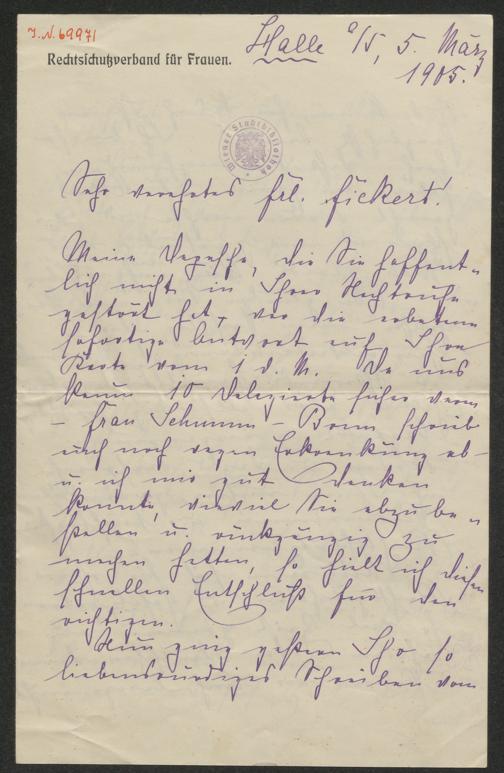 J. N. 69971
Halle a/S, 5. März
1905.
Rechtsschutzverband für Frauen.
Wiener Stadtbibliothek
Sehr verehrtes Frl. Fickert!
Meine Depesche, die Sie hoffent-
lich nicht in Ihrer Nachtruhe
gestört hat, war die erbetene
sofortige Antwort auf Ihre
Karte vom 1. d. M. Da uns
kaum 10 Delegierte sicher waren
- Frau Schumm - Bonn schrieb
auch noch wegen Erkrankung ab -
u. ich mir gut denken
konnte, wieviel Sie abzube-
stellen u. rückgängig zu
machen hätten, so hielt ich diesen
schnellen Entschluß für den
richtigen.
Nun ging gestern Ihr so
liebenswürdiges Schreiben vom